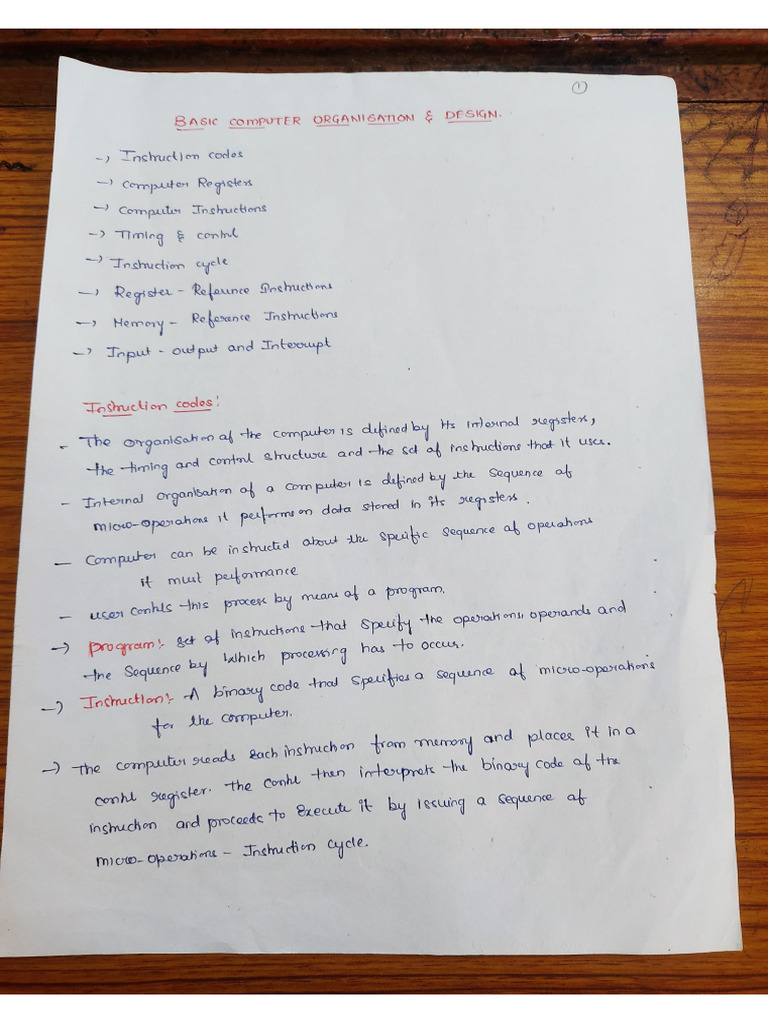 ①
BASIC COMPUTER ORGANISATION & DESIGN.
-) Instruction codes
-) Computer Registers
-) Computer Instructions
-) Timing & control
-) Instruction cycle
-) Register - Reference Instructions
-) Memory - Reference Instructions
-) Input - output and Interrupt
Instruction codes:
- The organisation of the computer is defined by its internal registers,
the timing and control structure and the set of instructions that it uses.
- Internal organisation of a computer is defined by the sequence of
micro-operations it performs on data stored in its registers.
- Computer can be instructed about the specific sequence of operations
it must performance
- user controls this process by means of a program.
-) program:- set of instructions that specify the operations, operands and
the sequence by which processing has to occur.
-) Instruction:- A binary code that specifies a sequence of micro-operations
for the computer.
-) The computer reads each instruction from memory and places it in a
control register. The control then interprets the binary code of the
instruction and proceeds to execute it by issuing a sequence of
micro-operations - Instruction cycle.